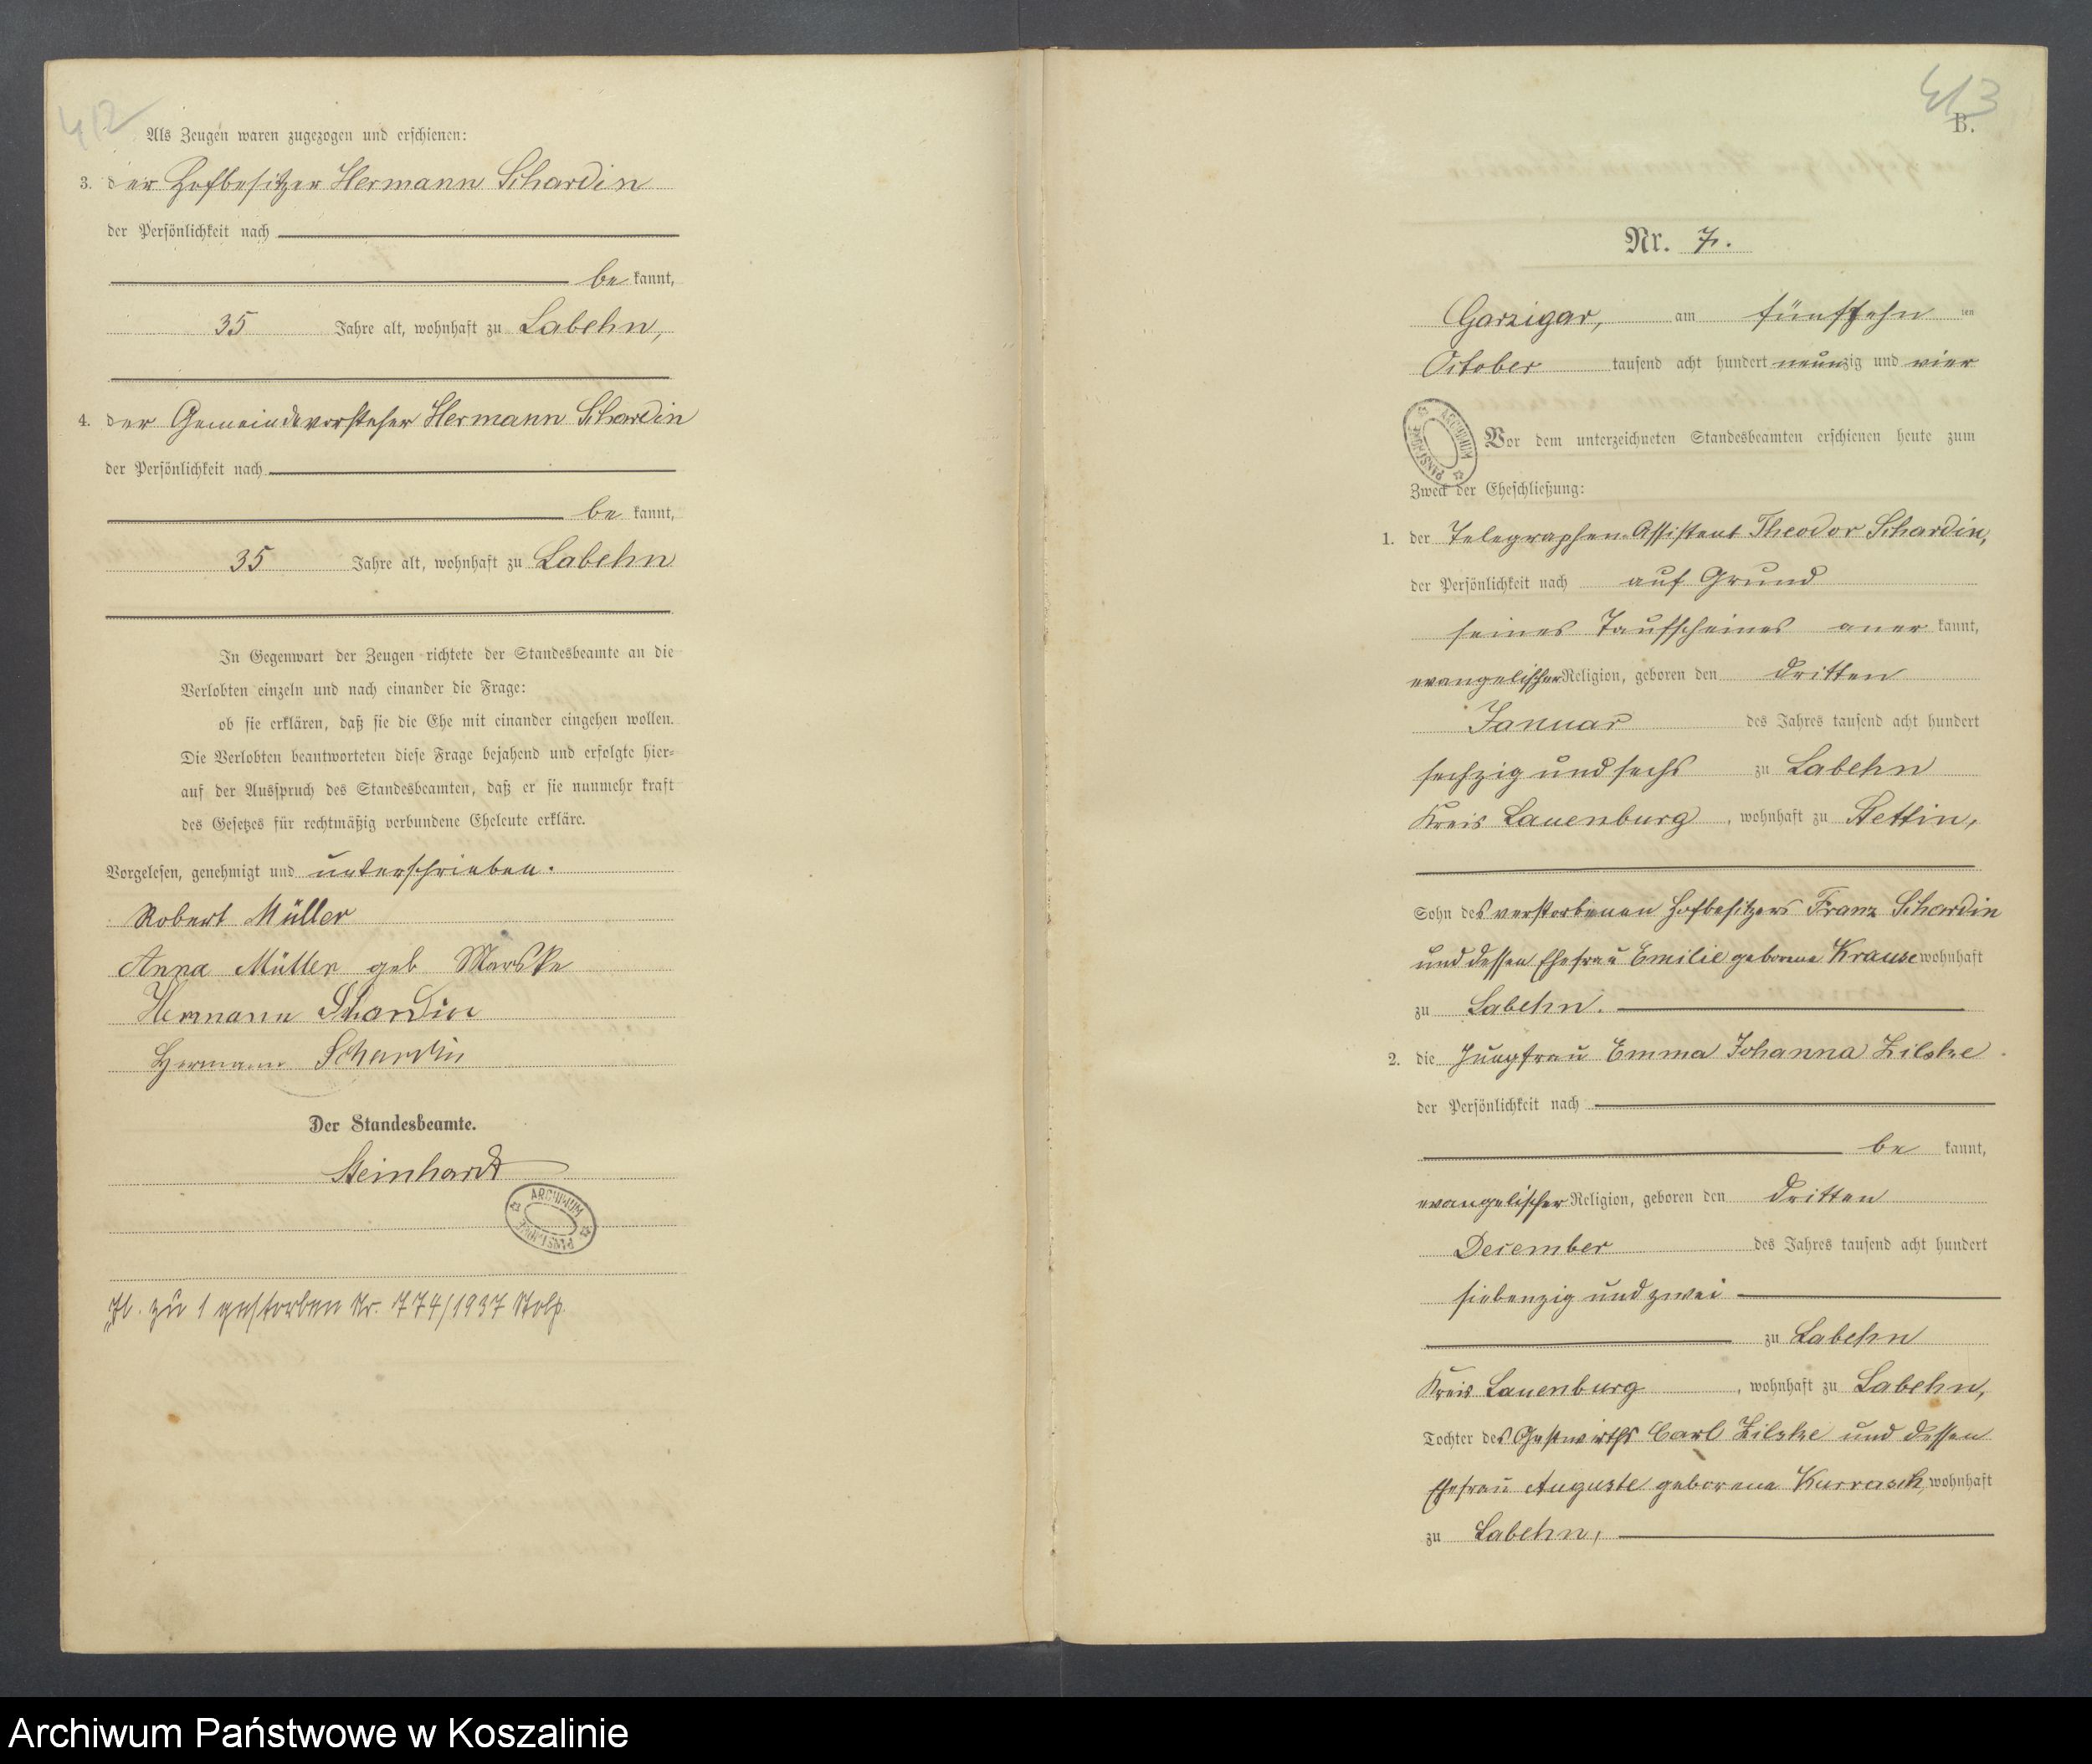 412
Als Zeugen waren zugezogen und erschienen:
3. der Hofbesitzer Hermann Schardin
der Persönlichkeit nach
be kannt,
35 Jahre alt, wohnhaft zu Labehn,
4. der Gemeindevorsteher Hermann Schardin
der Persönlichkeit nach
be kannt,
35 Jahre alt, wohnhaft zu Labehn
In Gegenwart der Zeugen richtete der Standesbeamte an die
Verlobten einzeln und nach einander die Frage:
ob sie erklären, daß sie die Ehe mit einander eingehen wollen.
Die Verlobten beantworteten diese Frage bejahend und erfolgte hier-
auf der Ausspruch des Standesbeamten, daß er sie nunmehr kraft
des Gesetzes für rechtmäßig verbundene Eheleute erkläre.
Vorgelesen, genehmigt und unterschrieben.
Robert Müller
Anna Müller geb Marske
Hermann Schardin
Hermann Schardin
Der Standesbeamte.
Steinhardt
ARCHIWUM PAŃSTWOWE
zu 1 gestorben Nr. 774/1937 Stolp.
413
B.
Nr. 7.
Garzigar, am fünfzehn ten
October tausend acht hundert neunzig und vier
ARCHIWUM PAŃSTWOWE
Vor dem unterzeichneten Standesbeamten erschienen heute zum
Zweck der Eheschließung:
1. der Telegraphen-Assistent Theodor Schardin,
der Persönlichkeit nach auf Grund
seines Taufscheines aner kannt,
evangelischer Religion, geboren den dritten
Januar des Jahres tausend acht hundert
sechzig und sechs zu Labehn
Kreis Lauenburg, wohnhaft zu Stettin,
Sohn des verstorbenen Hofbesitzers Franz Schardin
und dessen Ehefrau Emilie geborene Krause wohnhaft
zu Labehn.
2. die Jungfrau Emma Johanna Zilske
der Persönlichkeit nach
be kannt,
evangelischer Religion, geboren den dritten
December des Jahres tausend acht hundert
siebenzig und zwei
zu Labehn
Kreis Lauenburg, wohnhaft zu Labehn,
Tochter des Gastwirths Carl Zilske und dessen
Ehefrau Auguste geborene Kurrasch, wohnhaft
zu Labehn,
Archiwum Państwowe w Koszalinie